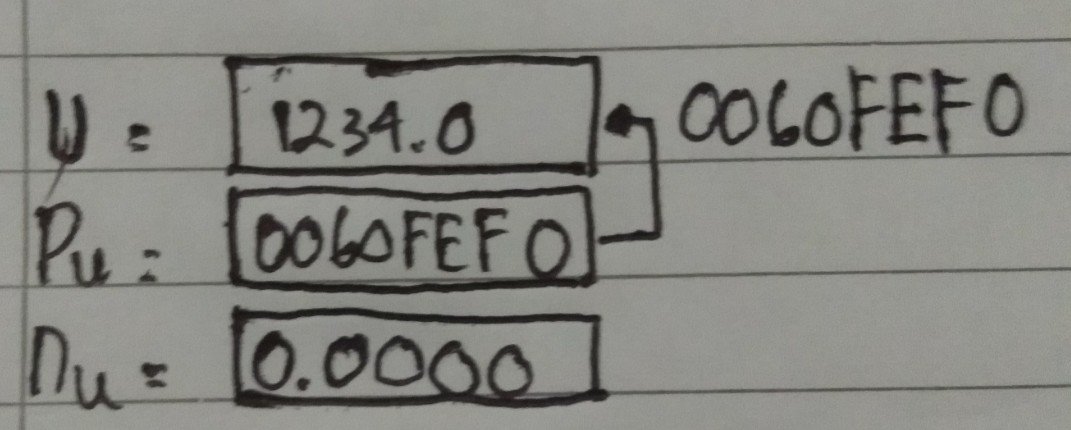 u = 1234.0 0060FEF0
Pu = 0060FEF0
nu = 0.0000